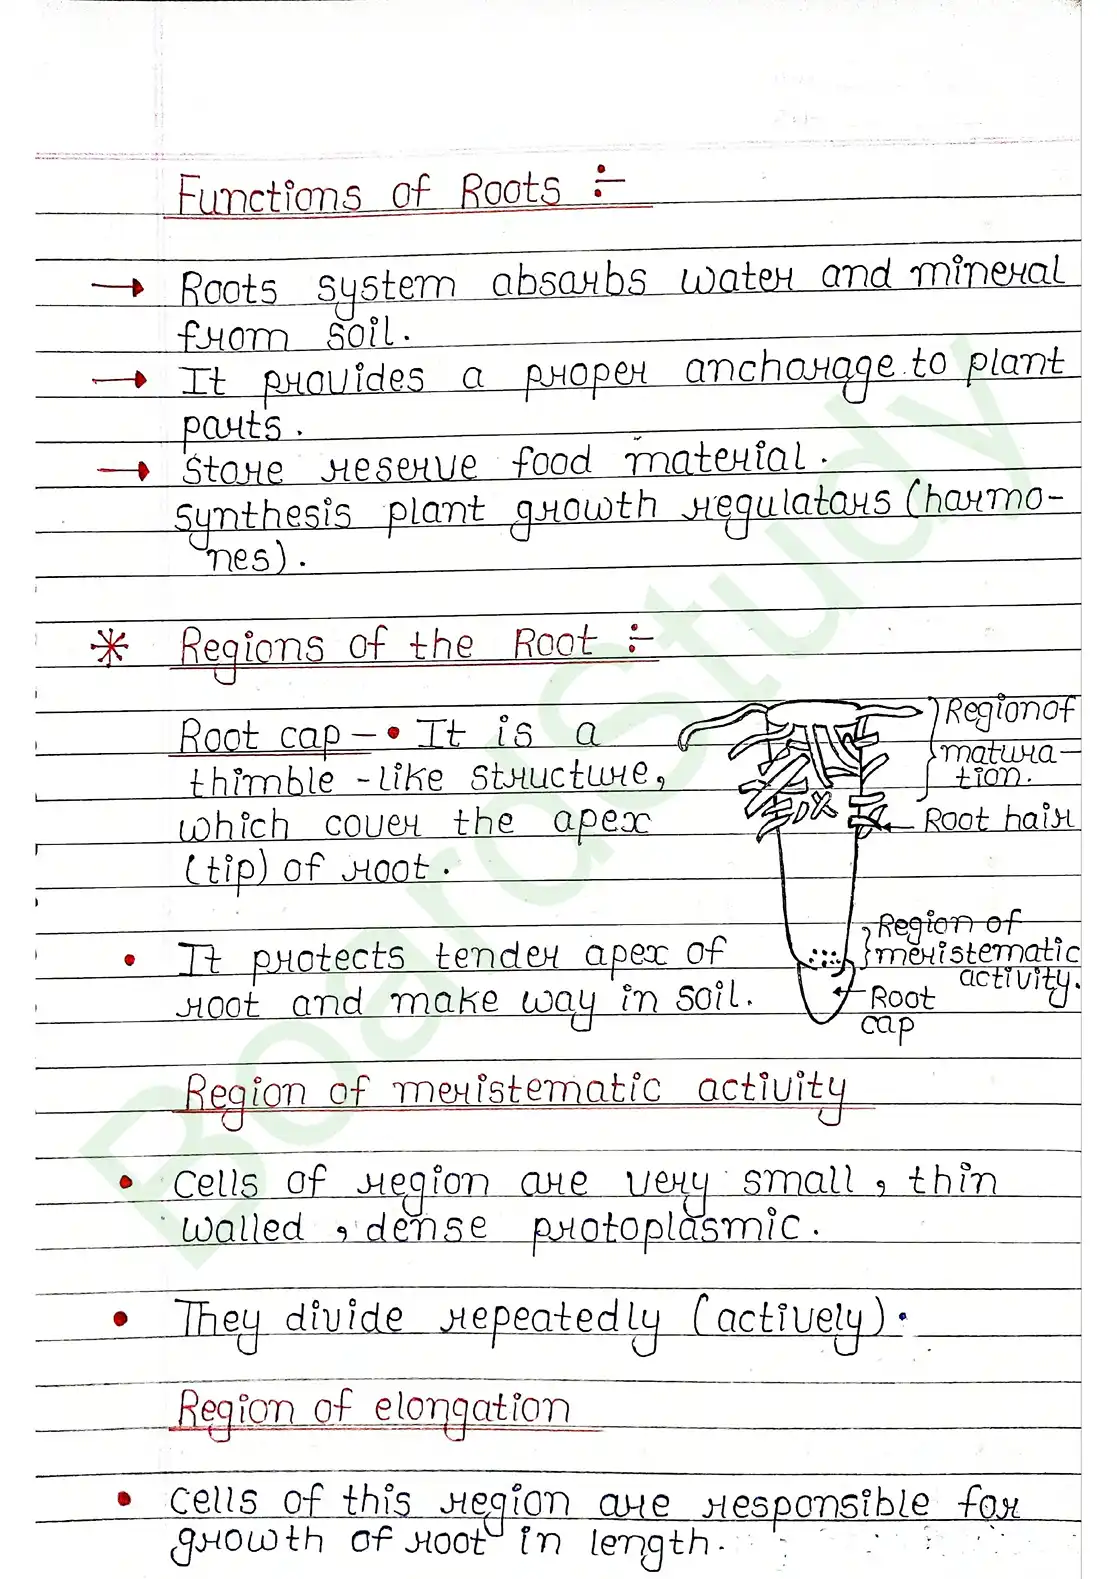 Functions of Roots :-
→ Roots system absorbs water and mineral
from soil.
→ It provides a proper anchorage to plant
parts.
→ Store reserve food material.
synthesis plant growth regulators (harmo-
nes).
* Regions of the Root :-
Root cap - • It is a
thimble - like structure,
which cover the apex
(tip) of root.
• It protects tender apex of
root and make way in soil.
Region of
matura-
tion.
Root hair
Region of
meristematic
activity.
Root
cap
Region of meristematic activity
• cells of region are very small, thin
walled, dense protoplasmic.
• They divide repeatedly (actively).
Region of elongation
• cells of this region are responsible for
growth of root in length.
BoardStudy